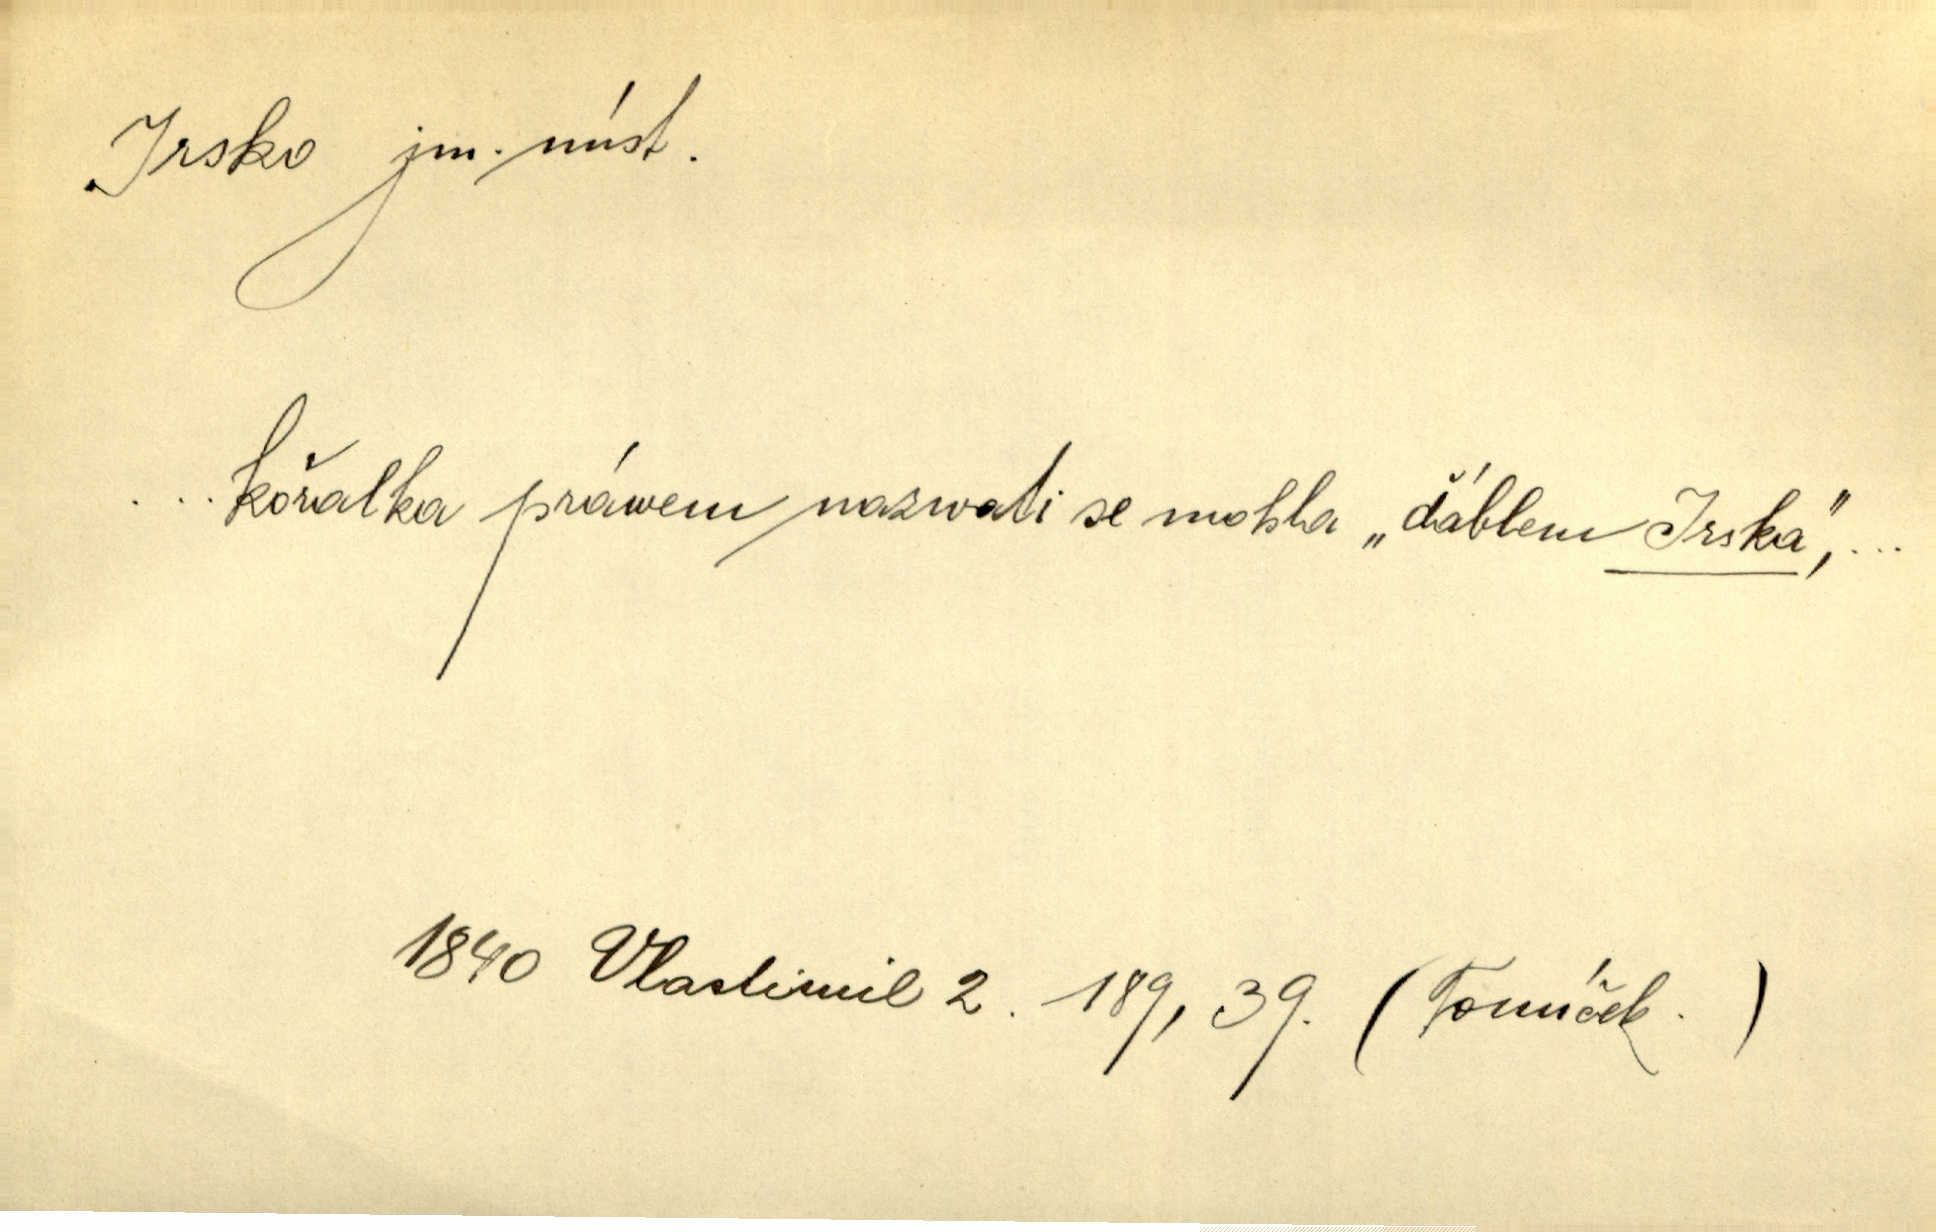 Irsko jm. míst.
...kořalka práwem nazwati se mohla „ďáblem Irska”,...
1840 Vlastimil 2. 189, 39. (Tomíček.)